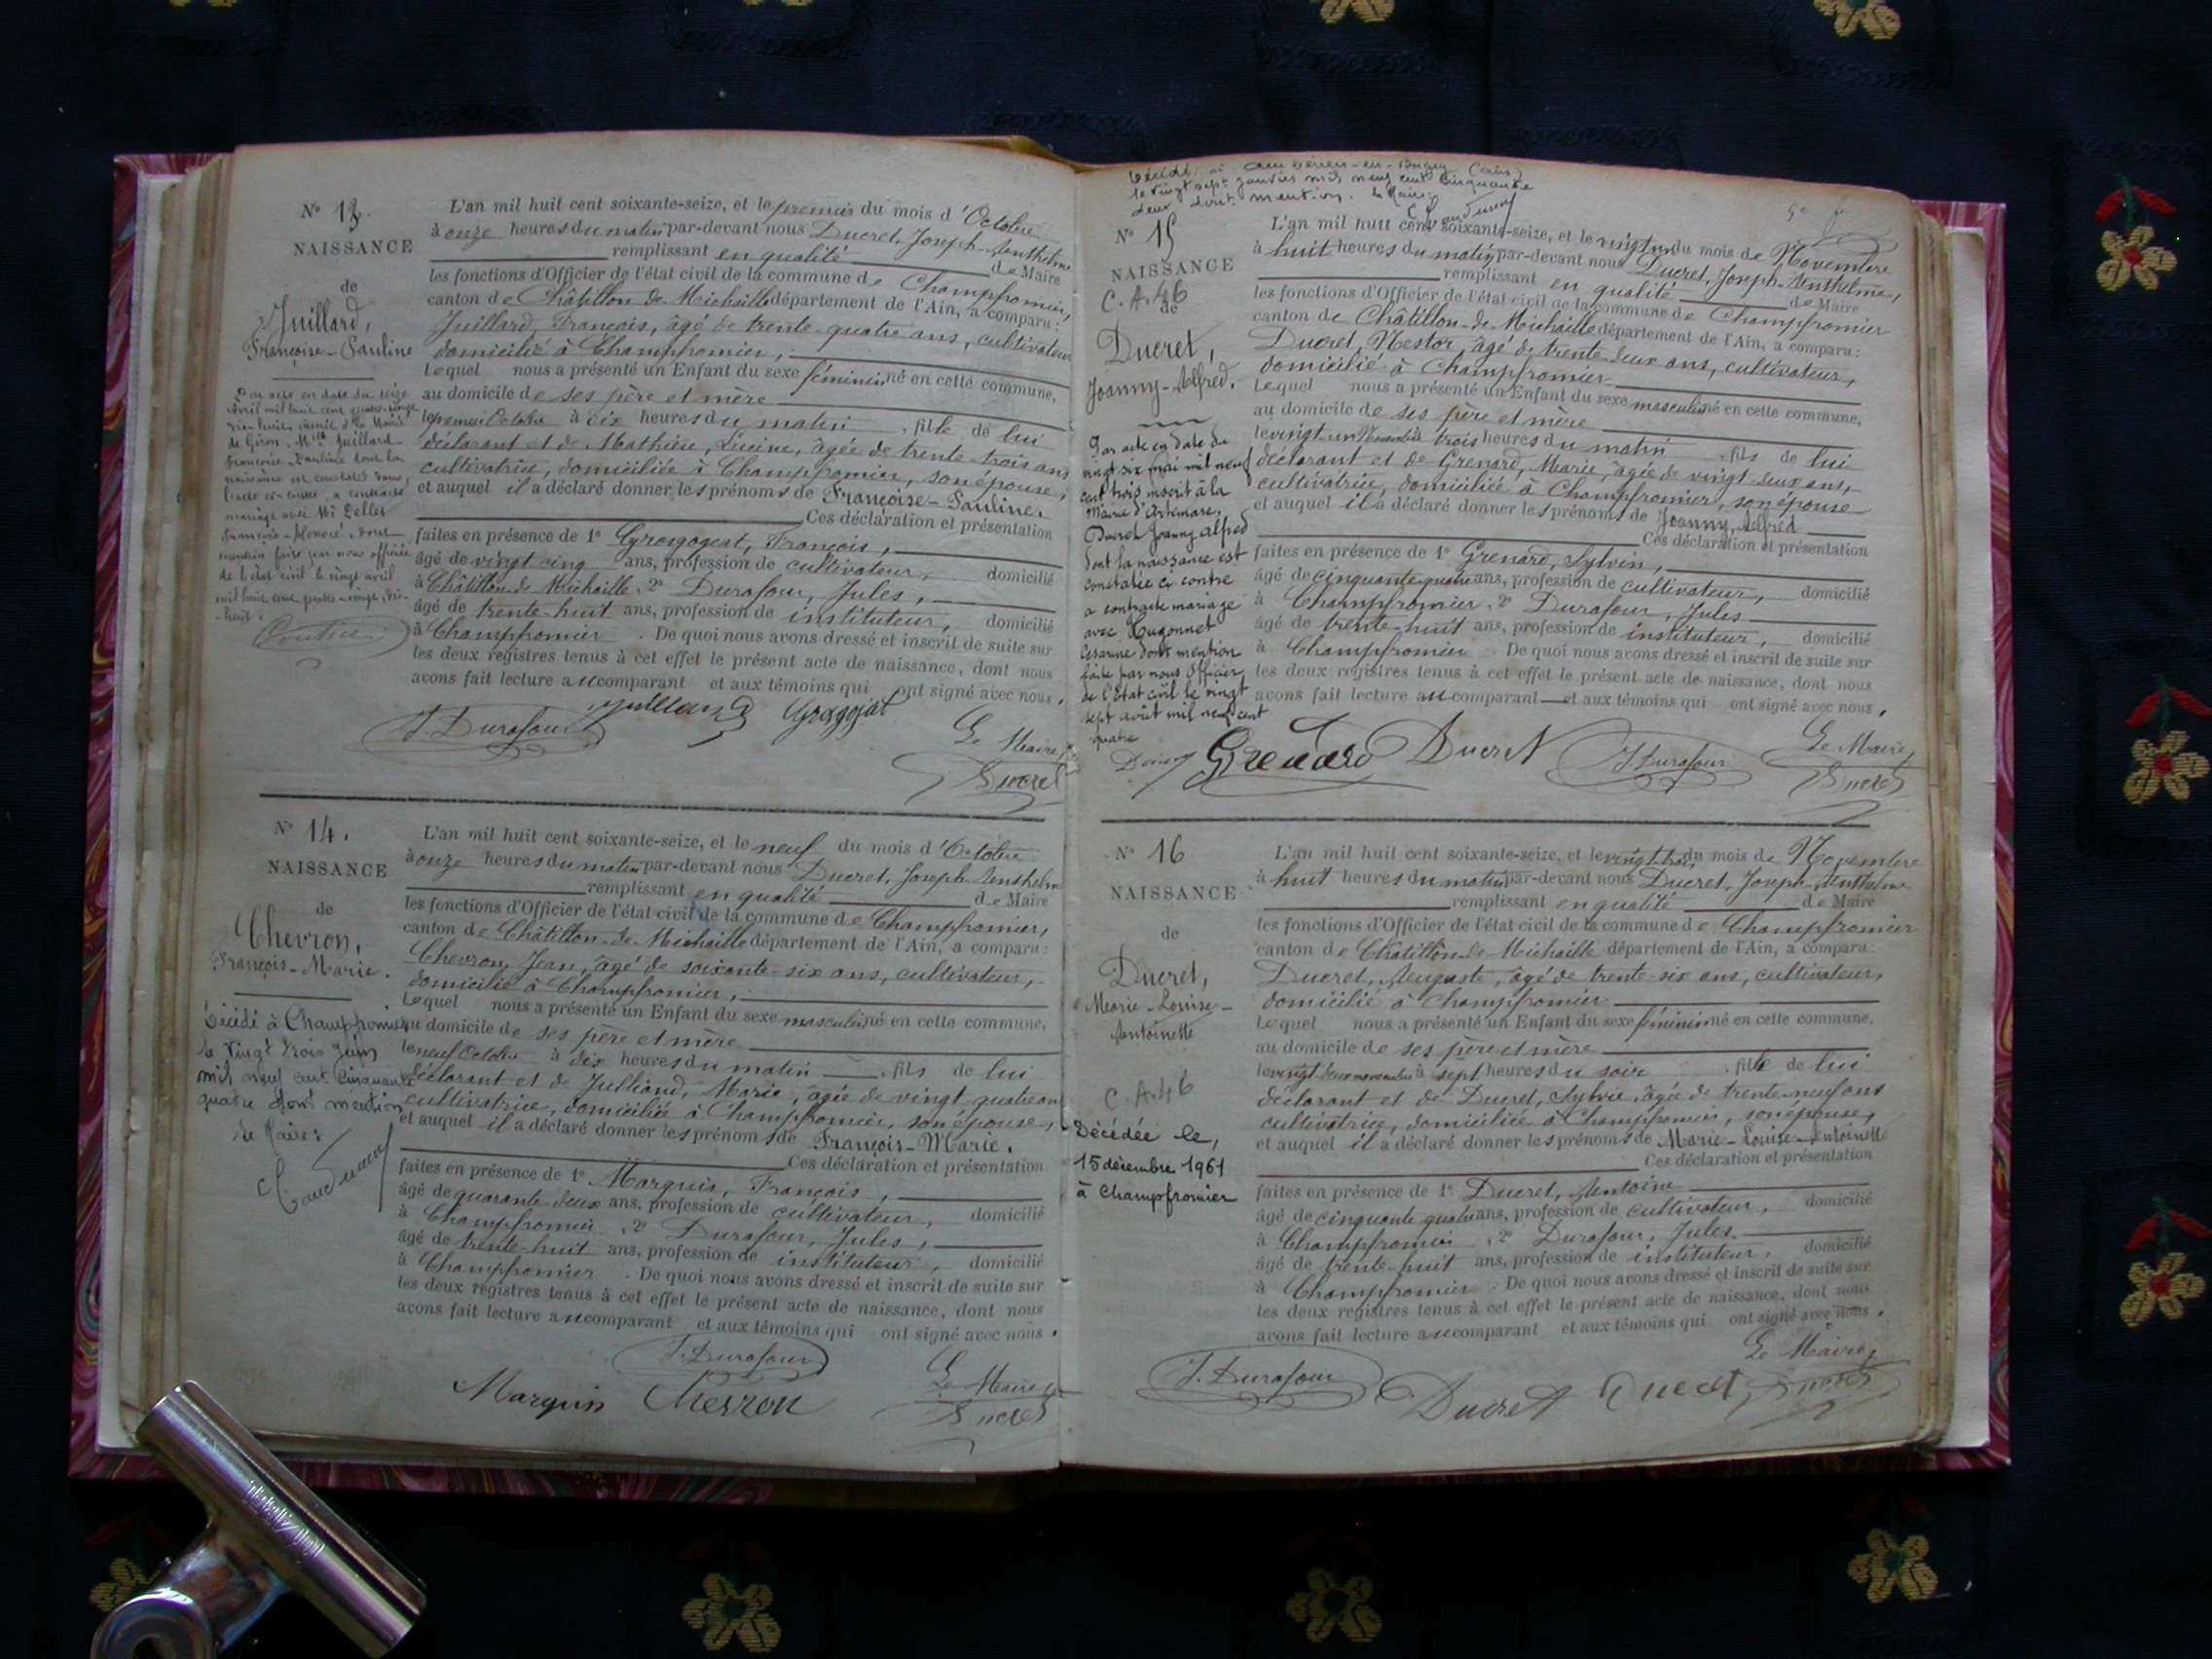 N° 13.
NAISSANCE
de
Juillard,
Françoise-Pauline
Par acte en date du seize
avril mil huit cent quatre-vingt
dix huit, inscrit à la Mairie
de Giron, Mlle Juillard
Françoise-Pauline dont la
naissance est constatée dans
l'acte ci-contre, a contracté
mariage avec Mr
François-Honoré, dont
mention faite par nous officier
de l'état civil le vingt avril
mil huit cent quatre-vingt-dix-
huit.
L'an mil huit cent soixante-seize, et le premier du mois d'Octobre
à onze heures du matin par-devant nous Ducret, Joseph-Anthelme
remplissant en qualité de Maire
les fonctions d'Officier de l'état civil de la commune de Champfromier,
canton de Châtillon de Michaille département de l'Ain, a comparu :
Juillard, François, âgé de trente-quatre ans, cultivateur
domicilié à Champfromier,
Lequel nous a présenté un Enfant du sexe féminin né en cette commune,
au domicile de ses père et mère
le premier Octobre à dix heures du matin, fille de lui
déclarant et de Mathieu, Lucine, âgée de trente-trois ans
cultivatrice, domiciliée à Champfromier, son épouse,
et auquel il a déclaré donner les prénoms de Françoise-Pauline.
Ces déclaration et présentation
faites en présence de 1° Grosgogeat, François,
âgé de vingt cinq ans, profession de cultivateur, domicilié
à Châtillon de Michaille, 2° Durafour, Jules,
âgé de trente-huit ans, profession de instituteur, domicilié
à Champfromier. De quoi nous avons dressé et inscrit de suite sur
les deux registres tenus à cet effet le présent acte de naissance, dont nous
avons fait lecture au comparant et aux témoins qui ont signé avec nous.
J. Durafour Juillard Grosgojat
Le Maire,
Ducret
N° 14.
NAISSANCE
de
Chevron,
François-Marie.
Décédé à Champfromier
le vingt trois juin
mil neuf cent cinquante
quatre dont mention
Le Maire :
L'an mil huit cent soixante-seize, et le neuf du mois d'Octobre
à onze heures du matin par-devant nous Ducret, Joseph-Anthelme
remplissant en qualité de Maire
les fonctions d'Officier de l'état civil de la commune de Champfromier,
canton de Châtillon-de-Michaille département de l'Ain, a comparu :
Chevron, Jean, âgé de soixante-six ans, cultivateur,
domicilié à Champfromier,
Lequel nous a présenté un Enfant du sexe masculin né en cette commune,
au domicile de ses père et mère
le neuf Octobre à dix heures du matin, fils de lui
déclarant et de Julliand, Marie, âgée de vingt quatre ans
cultivatrice, domiciliée à Champfromier, son épouse,
et auquel il a déclaré donner les prénoms de François-Marie.
Ces déclaration et présentation
faites en présence de 1° Marquis, François,
âgé de quarante-deux ans, profession de cultivateur, domicilié
à Champfromier, 2° Durafour, Jules,
âgé de trente-huit ans, profession de instituteur, domicilié
à Champfromier. De quoi nous avons dressé et inscrit de suite sur
les deux registres tenus à cet effet le présent acte de naissance, dont nous
avons fait lecture au comparant et aux témoins qui ont signé avec nous.
J. Durafour
Marquis Chevron
Le Maire,
Ducret
Décédé à Ambérieu-en-Bugey (Ain)
le vingt sept janvier mil neuf cent cinquante
deux dont mention. Le Maire
N° 15
NAISSANCE
C.A.46
de
Ducret,
Joanny-Alfred.
Par acte en date du
vingt six mai mil neuf
cent trois inscrit à la
Mairie d'Artemare,
Ducret Joanny Alfred
dont la naissance est
constatée ci contre
a contracté mariage
avec Hugonnet
Césarine dont mention
faite par nous Officier
de l'Etat civil le vingt
sept août mil neuf cent
quatre
L'an mil huit cent soixante-seize, et le vingt un du mois de Novembre
à huit heures du matin par-devant nous Ducret, Joseph-Anthelme,
remplissant en qualité de Maire
les fonctions d'Officier de l'état civil de la commune de Champfromier
canton de Châtillon-de-Michaille département de l'Ain, a comparu :
Ducret, Nestor, âgé de trente-deux ans, cultivateur,
domicilié à Champfromier
Lequel nous a présenté un Enfant du sexe masculin né en cette commune,
au domicile de ses père et mère
le vingt-un Novembre à trois heures du matin, fils de lui
déclarant et de Grenard, Marie, âgée de vingt-deux ans,
cultivatrice, domiciliée à Champfromier, son épouse
et auquel il a déclaré donner les prénoms de Joanny, Alfred
Ces déclaration et présentation
faites en présence de 1° Grenard, Sylvin,
âgé de cinquante quatre ans, profession de cultivateur, domicilié
à Champfromier, 2° Durafour, Jules
âgé de trente-huit ans, profession de instituteur, domicilié
à Champfromier. De quoi nous avons dressé et inscrit de suite sur
les deux registres tenus à cet effet le présent acte de naissance, dont nous
avons fait lecture au comparant et aux témoins qui ont signé avec nous.
Grenard Ducret J. Durafour
Le Maire,
Ducret
N° 16
NAISSANCE
de
Ducret,
Marie-Louise-
Antoinette
C.A.46
Décédée le,
15 décembre 1961
à Champfromier
L'an mil huit cent soixante-seize, et le vingt-trois du mois de Novembre
à huit heures du matin par-devant nous Ducret, Joseph-Anthelme
remplissant en qualité de Maire
les fonctions d'Officier de l'état civil de la commune de Champfromier
canton de Châtillon-de-Michaille département de l'Ain, a comparu :
Ducret, Auguste, âgé de trente-six ans, cultivateur,
domicilié à Champfromier
Lequel nous a présenté un Enfant du sexe féminin né en cette commune,
au domicile de ses père et mère
le vingt-deux novembre à sept heures du soir, fille de lui
déclarant et de Ducret, Sylvie, âgée de trente-neuf ans
cultivatrice, domiciliée à Champfromier, son épouse,
et auquel il a déclaré donner les prénoms de Marie-Louise-Antoinette
Ces déclaration et présentation
faites en présence de 1° Ducret, Antoine
âgé de cinquante quatre ans, profession de cultivateur, domicilié
à Champfromier, 2° Durafour, Jules.
âgé de trente-huit ans, profession de instituteur, domicilié
à Champfromier. De quoi nous avons dressé et inscrit de suite sur
les deux registres tenus à cet effet le présent acte de naissance, dont nous
avons fait lecture au comparant et aux témoins qui ont signé avec nous.
Le Maire,
J. Durafour Ducret Ducret Ducret